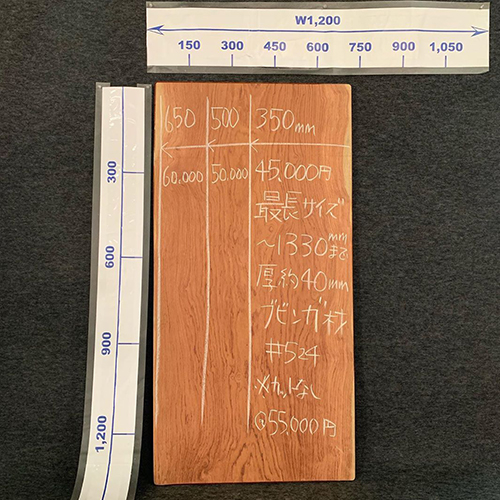 W1,200
150 300 450 600 750 900 1,050
300
600
900
1,200
650 500 350mm
60,000 50,000 45,000円
最長サイズ
〜1330mmまで
厚約40mm
ブビンガ材
#524
※カットなし
@55,000円